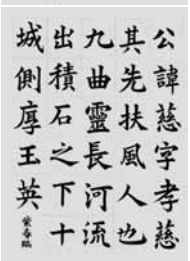 公諱慈字孝慈
其先扶風人也
九曲靈長河流
出積石之下十
城側厚王英